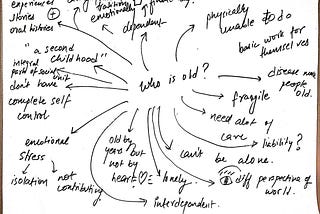 experiences
stories ⊕
oral histories
emotionally
dependent
physically
unable to do
basic work for
themselves
"a second
childhood"
integral
part of social
unit
don't have
complete self
control
who is old?
disease makes
people
old.
fragile
need alot of
care
liability?
can't be alone.
diff perspective of
world.
lonely
old by
years but
not by
heart ♡
interdependent.
emotional
stress
isolation
not
contributing